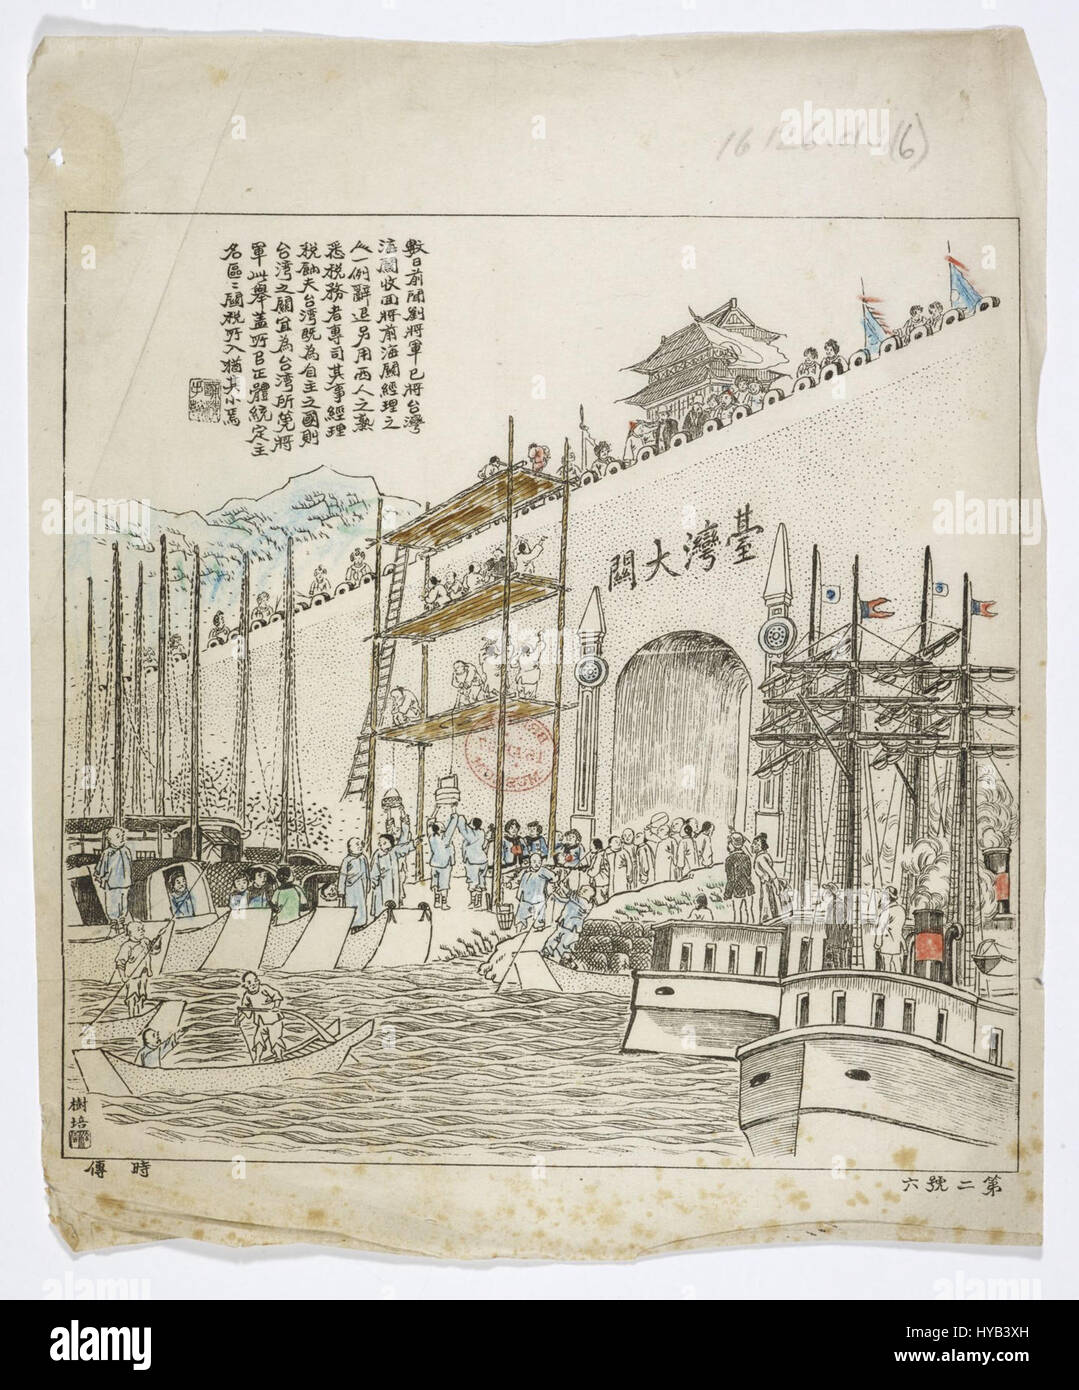 16126.d.(6)
數日前聞劉將軍已將台灣
海關收回將前海關經理之
人一例辭退另用西人之熟
悉稅務者專司其事經理
稅餉夫台灣既為自主之國則
台灣之關宜為台灣所筦將
軍此舉蓋所以正體統定主
名區區關稅所入猶其小焉
臺灣大關
樹培
時傳
第二號六
BRITISH MUSEUM
alamy
alamy
Image ID: HYB3XH
www.alamy.com